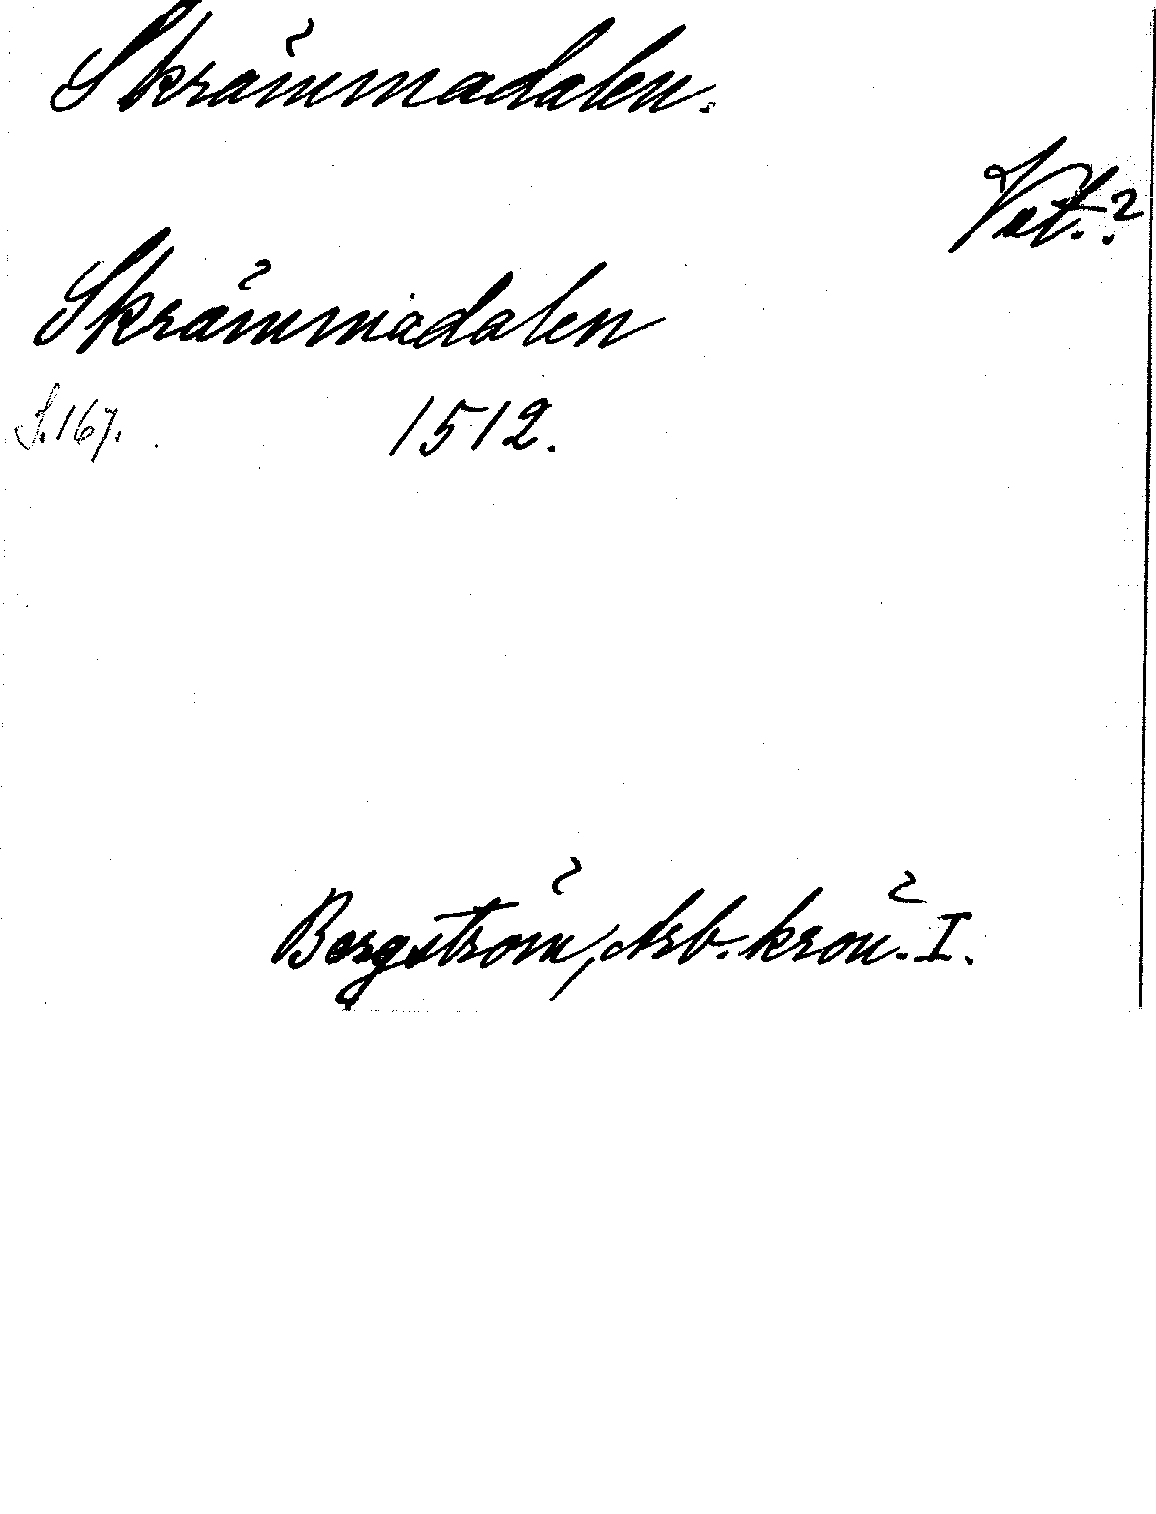 Skrämmadalen.
Vat.?
Skrämmadalen
S. 167. 1512.
Bergström, Arb. krön. I.